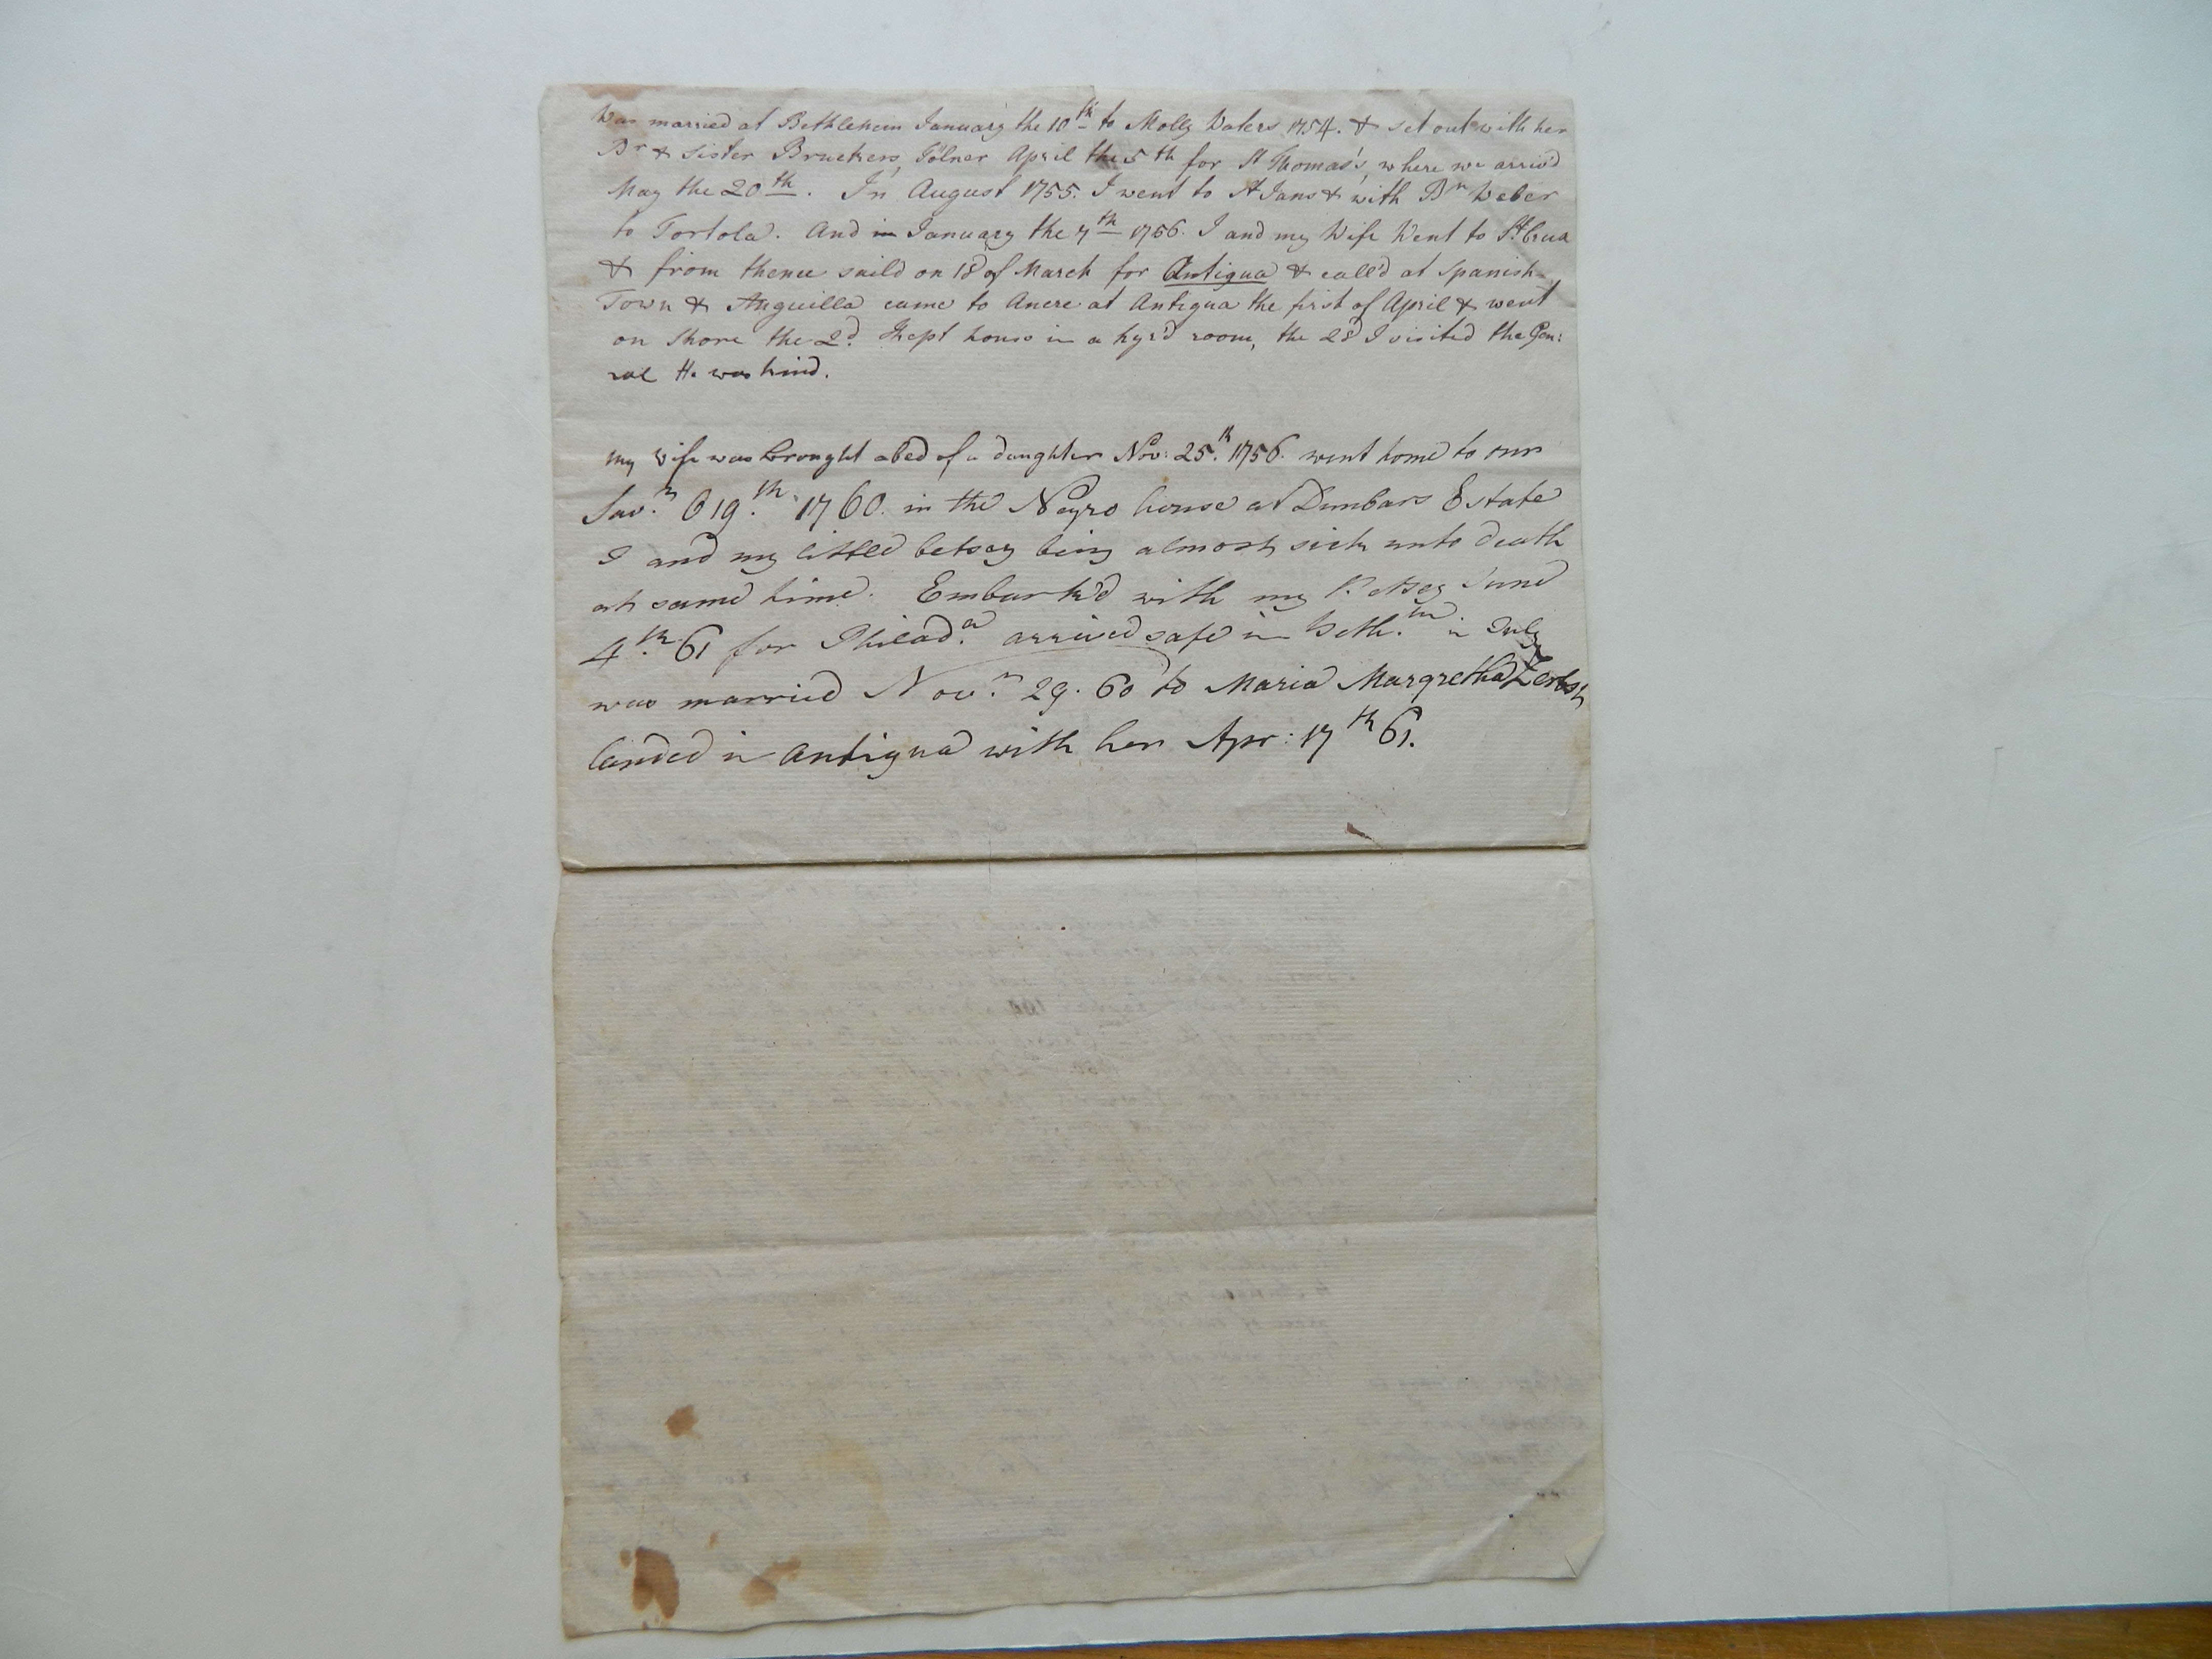 Was married at Bethlehem January the 10th to Molly Waters 1754. & set out with her
Br & sister Bruckers, Gölner April the 5th for St Thomas's, where we arriv'd
May the 20th. In August 1755. I went to St Jans & with Br Weber
to Tortola. And in January the 7th 1756. I and my Wife Went to St Crux
& from thence saild on 18 of March for Antigua & call'd at Spanish
Town & Anguilla came to Ancre at Antigua the first of April & went
on shore the 2d. & kept house in a hyr'd room, the 28 I visited the Gen:
ral He was kind.
my Wife was brought abed of a daughter Nov: 25th. 1756. went home to our
Savr. 19th. 1760. in the Negro house at Dunbars Estate
I and my little betsey being almost sick unto death
at same time. Embark'd with my Betsey June
4th. 61 for Philada. arrived safe in Bethm. in July
was married Novr. 29. 60 to Maria Margretha
landed in Antigua with her Apr: 17th 61.